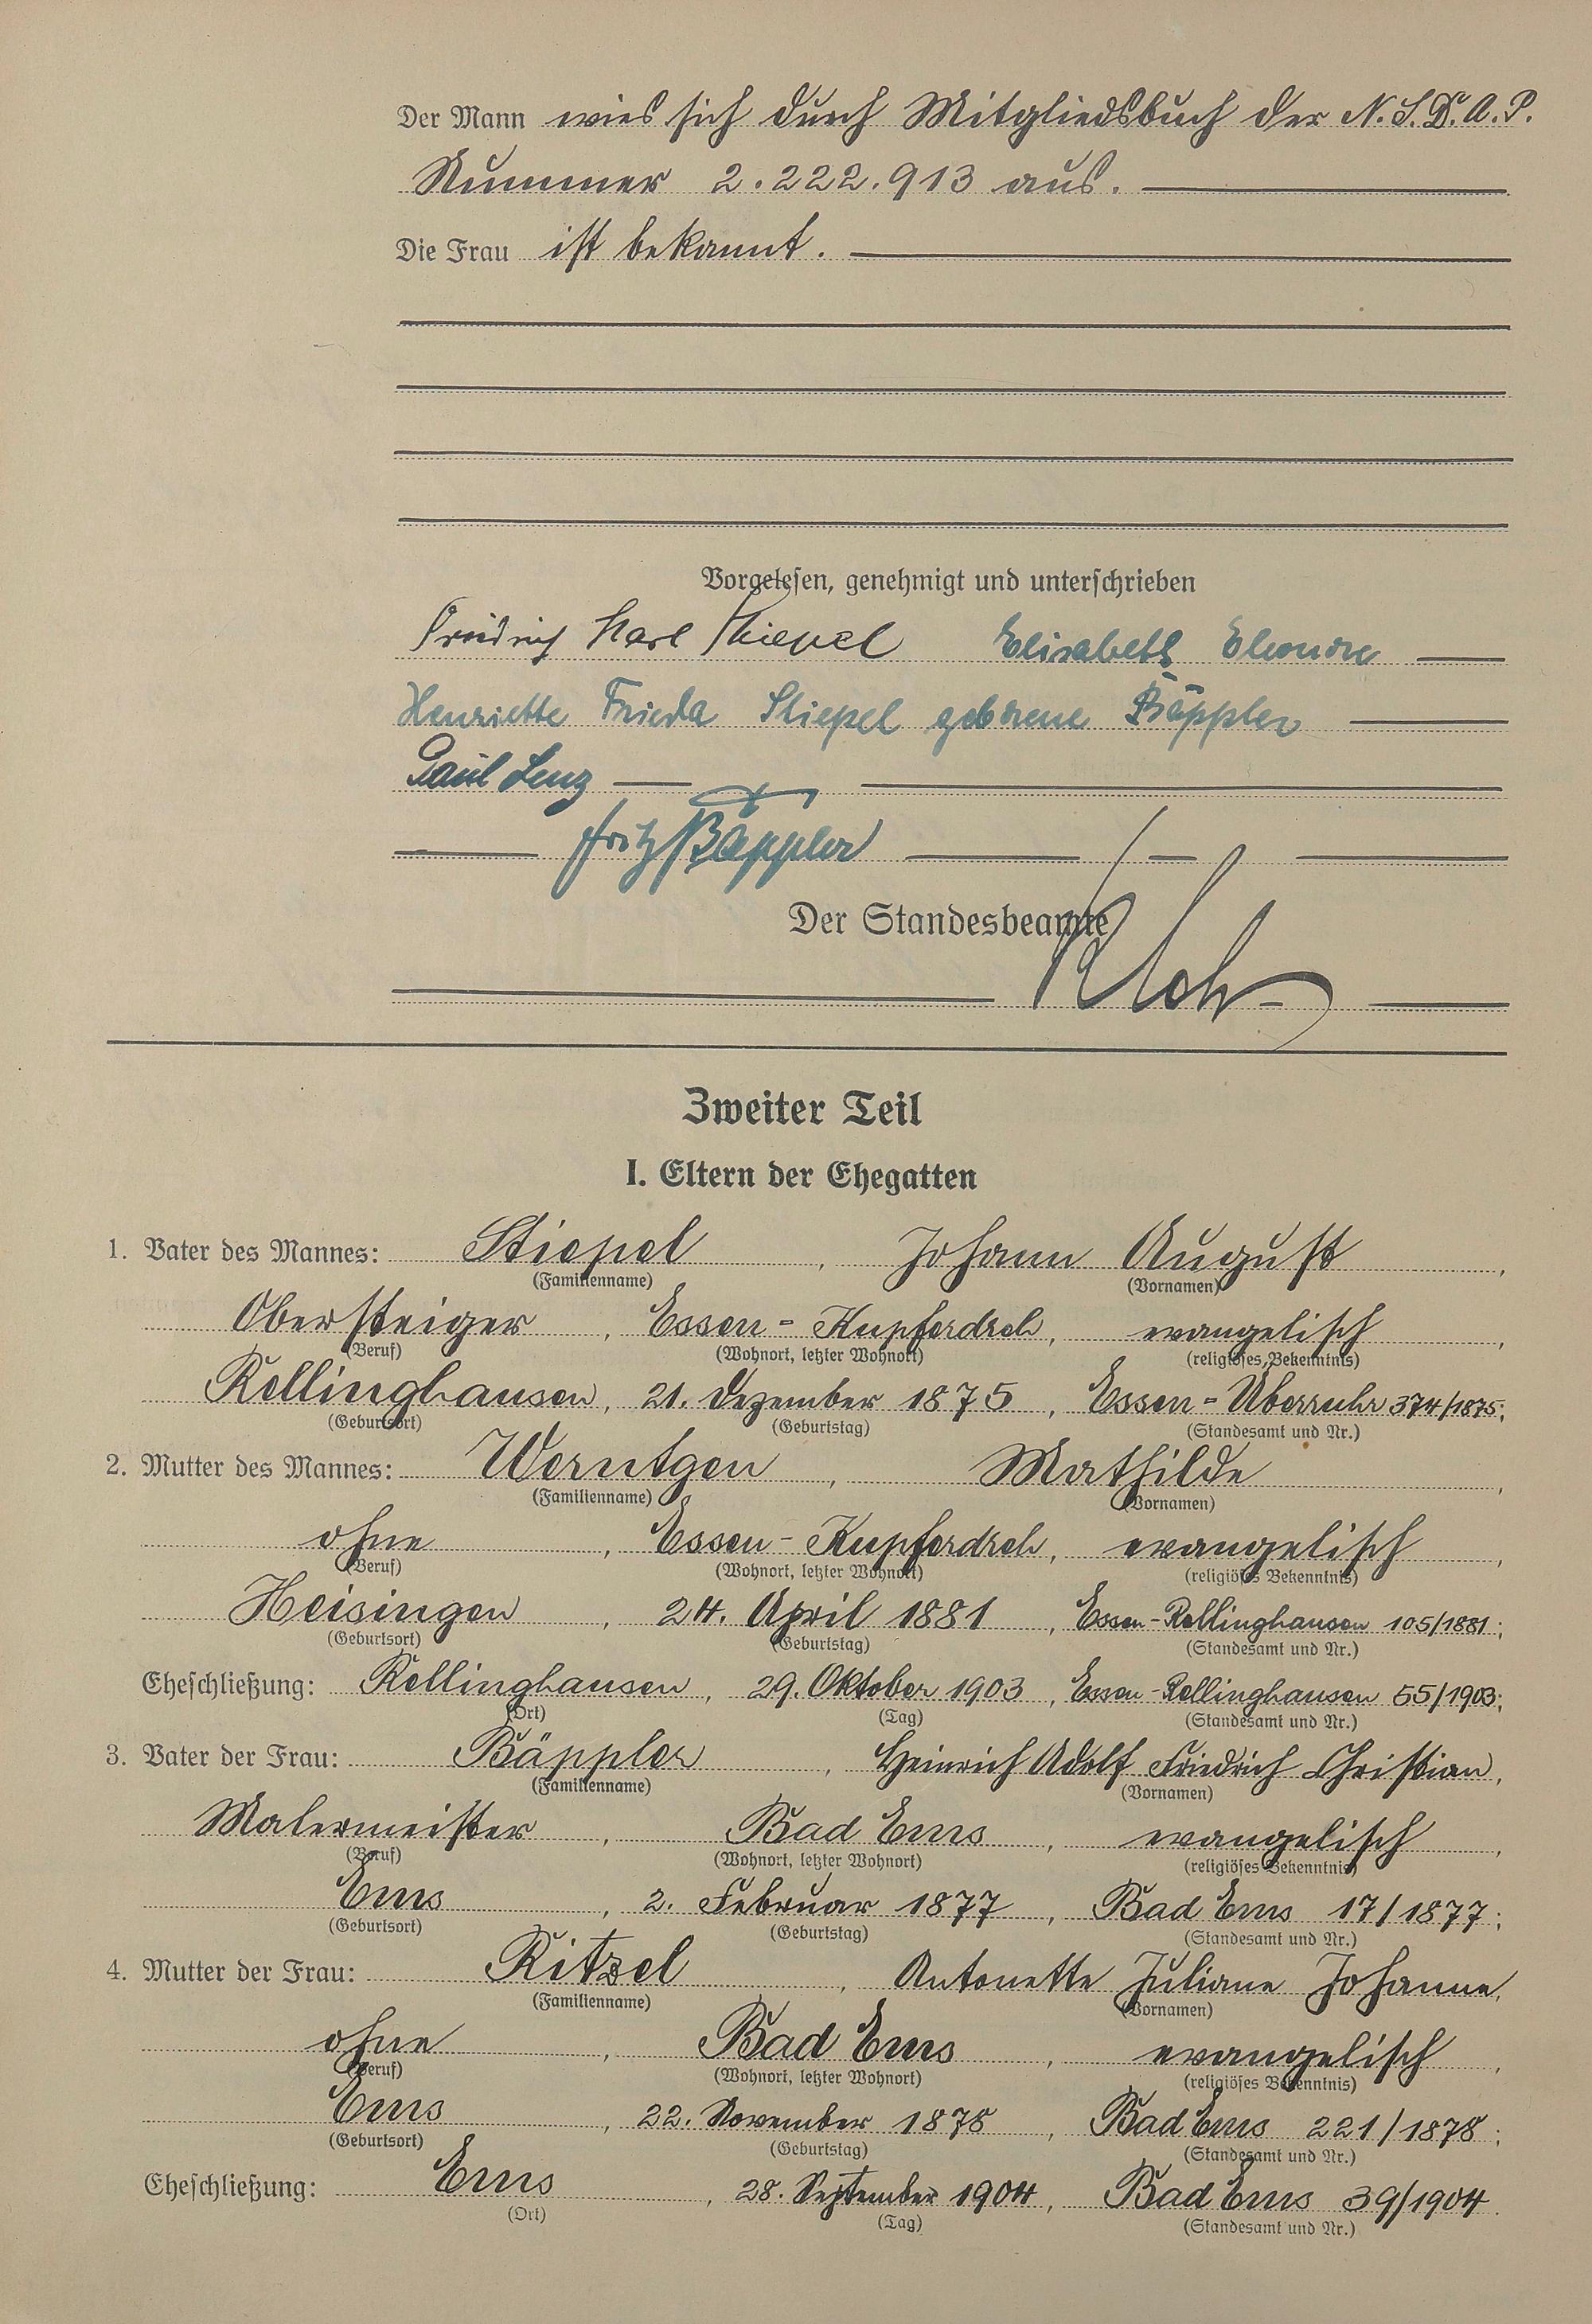 Der Mann wies sich durch Mitgliedsbuch der N.S.D.A.P.
Nummer 2.222.913 aus.
Die Frau ist bekannt.
Vorgelesen, genehmigt und unterschrieben
Friedrich Karl Stiepel Elisabeth Eleonore
Henriette Frieda Stiepel geborene Bäppler
Paul Lenz
Fritz Bäppler
Der Standesbeamte
Zweiter Teil
I. Eltern der Ehegatten
1. Vater des Mannes: Stiepel, Johann August,
(Familienname) (Vornamen)
Obersteiger, Essen-Kupferdreh, evangelisch,
(Beruf) (Wohnort, letzter Wohnort) (religiöses Bekenntnis)
Rellinghausen, 21. Dezember 1875, Essen-Überruhr 374/1875;
(Geburtsort) (Geburtstag) (Standesamt und Nr.)
2. Mutter des Mannes: Werntgen, Mathilde,
(Familienname) (Vornamen)
ohne, Essen-Kupferdreh, evangelisch,
(Beruf) (Wohnort, letzter Wohnort) (religiöses Bekenntnis)
Heisingen, 24. April 1881, Essen-Rellinghausen 105/1881;
(Geburtsort) (Geburtstag) (Standesamt und Nr.)
Eheschließung: Rellinghausen, 29. Oktober 1903, Essen-Rellinghausen 55/1903;
(Ort) (Tag) (Standesamt und Nr.)
3. Vater der Frau: Bäppler, Heinrich Adolf Friedrich Christian,
(Familienname) (Vornamen)
Malermeister, Bad Ems, evangelisch,
(Beruf) (Wohnort, letzter Wohnort) (religiöses Bekenntnis)
Ems, 2. Februar 1877, Bad Ems 17/1877;
(Geburtsort) (Geburtstag) (Standesamt und Nr.)
4. Mutter der Frau: Ritzel, Antonette Juliane Johanne,
(Familienname) (Vornamen)
ohne, Bad Ems, evangelisch,
(Beruf) (Wohnort, letzter Wohnort) (religiöses Bekenntnis)
Ems, 22. November 1878, Bad Ems 221/1878;
(Geburtsort) (Geburtstag) (Standesamt und Nr.)
Eheschließung: Ems, 28. September 1904, Bad Ems 39/1904.
(Ort) (Tag) (Standesamt und Nr.)